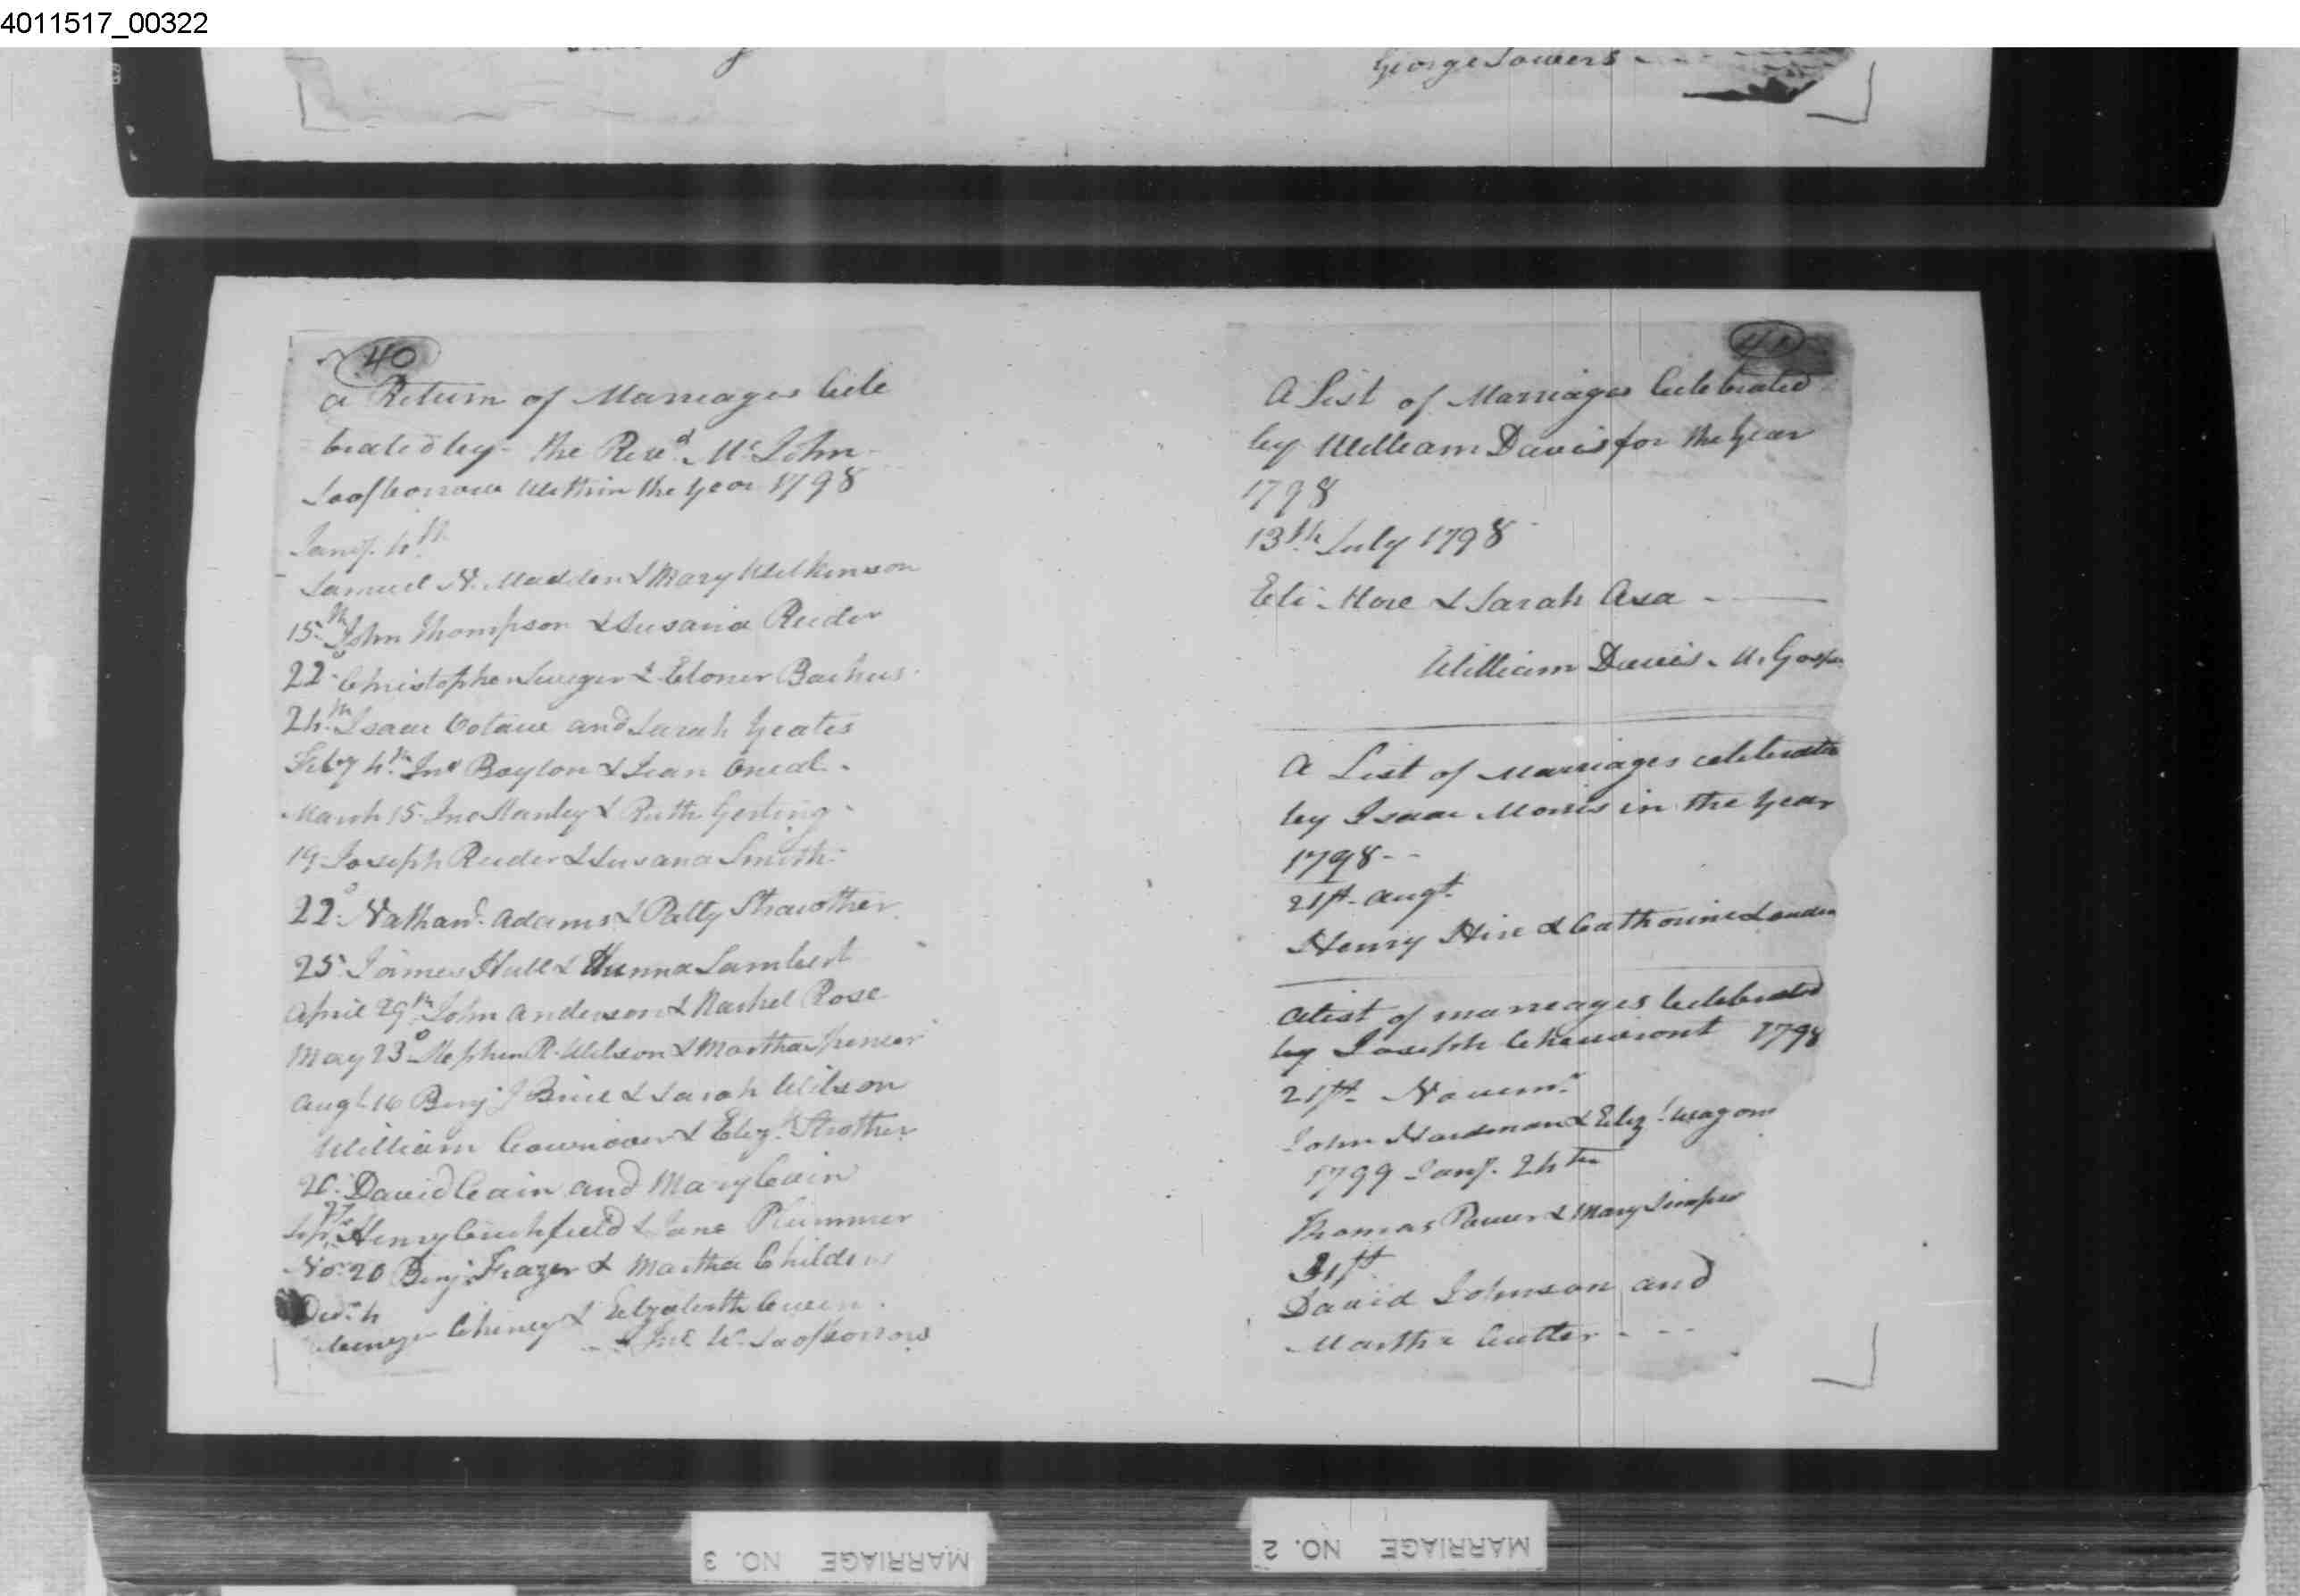 4011517_00322
George Towers
40
a Return of Marriages Cele
brated by the Revd. Mr. John
Loofborrow Within the Year 1798
Jany. 4th
Samuel N. Madden & Mary Wilkinson
15th John Thompson & Susana Reeder
22d Christopher Sweger & Eloner Backus
24th Isaac Cotaw and Sarah Yeates
Feby 4th Jno Boylon & Jean Oneal
March 15 Jno Stanley & Ruth
19 Joseph Reeder & Susana Smith
22d Nathanl. Adams & Patty Strawther
25 James Hull & Hunna Lambert
April 29th John Anderson & Rachel Rose
May 23d Stephen R. Wilson & Martha Spencer
Augt 16 Benj J Brice & Sarah Wilson
William & Elizh. Strother
26. David Cain and Mary Cain
Sepr. 27th Henry Cruchfield & Jane Plummer
No. 20 Benj. Frazer & Martha Childers
Decr. 4
Chiney & Elizabeth Queen
W. Loofborrow
A List of Marriages Celebrated
by William Davis for the Year
1798
13th July 1798
Eli More & Sarah Asa
William Davis. M. Gosp
A List of Marriages celebrated
by Isaac Morris in the Year
1798
21st Augt.
Henry Hire & Cathorine Louden
A List of marreages Celebrated
by Joseph Cheuvront 1798
21st Novemr.
John Hardman & Eliz. Wagoner
1799 Jany. 24th
Thomas Power & Mary
31st
David Johnson and
Martha Cutler
MARRIAGE NO. 3
MARRIAGE NO. 2